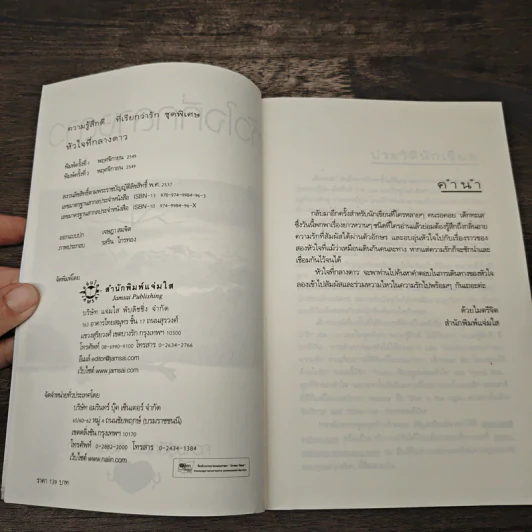 ความรู้สึกดี... ที่เรียกว่ารัก ชุดพิเศษ
หัวใจที่กลางดาว
พิมพ์ครั้งที่ 1 พฤศจิกายน 2549
พิมพ์ครั้งที่ 2 พฤศจิกายน 2549
สงวนลิขสิทธิ์ตามพระราชบัญญัติลิขสิทธิ์ พ.ศ. 2537
เลขมาตรฐานสากลประจำหนังสือ ISBN-13 978-974-9984-96-3
เลขมาตรฐานสากลประจำหนังสือ ISBN-10 974-9984-96-X
ออกแบบปก
ภาพประกอบ
จัดพิมพ์โดย
สำนักพิมพ์แจ่มใส
Jamsai Publishing
บริษัท แจ่มใส พับลิชชิ่ง จำกัด
163 อาคารไทยสมุทร ชั้น 17 ถนนสุรวงศ์
แขวงสุริยวงศ์ เขตบางรัก กรุงเทพฯ 10500
โทรศัพท์ 08-6990-4100 โทรสาร 0-2634-2766
อีเมล์ editor@jamsai.com
เว็บไซต์ www.jamsai.com
จัดจำหน่ายทั่วประเทศโดย
บริษัท อมรินทร์ บุ๊ค เซ็นเตอร์ จำกัด
65/60-62 หมู่ 4 ถนนชัยพฤกษ์ (บรมราชชนนี)
เขตตลิ่งชัน กรุงเทพฯ 10170
โทรศัพท์ 0-2882-2000 โทรสาร 0-2434-1384
เว็บไซต์ www.naiin.com
ราคา 139 บาท
คำนำ
กลับมาอีกครั้งสำหรับนักเขียนที่ใครหลายๆ คนรอคอย
ซึ่งวันนี้พกพาเรื่องยาวหวานๆ ชนิดที่ใครอ่านแล้วย่อมต้องรู้สึกถึงกลิ่นอาย
ความรักที่สัมผัสได้ผ่านตัวอักษร และอบอุ่นหัวใจไปกับเรื่องราวของ
สองหัวใจที่แม้ว่าเหมือนเดินกันคนละทาง หากแต่ความรักก็จะชักนำและ
เชื่อมกันไว้จนได้
หัวใจที่กลางดาว จะพาท่านไปค้นหาคำตอบในการเดินทางของหัวใจ
ลองเข้าไปสัมผัสและร่วมหวามไหวในความรักไปพร้อมๆ กันเถอะค่ะ
ด้วยไมตรีจิต
สำนักพิมพ์แจ่มใส